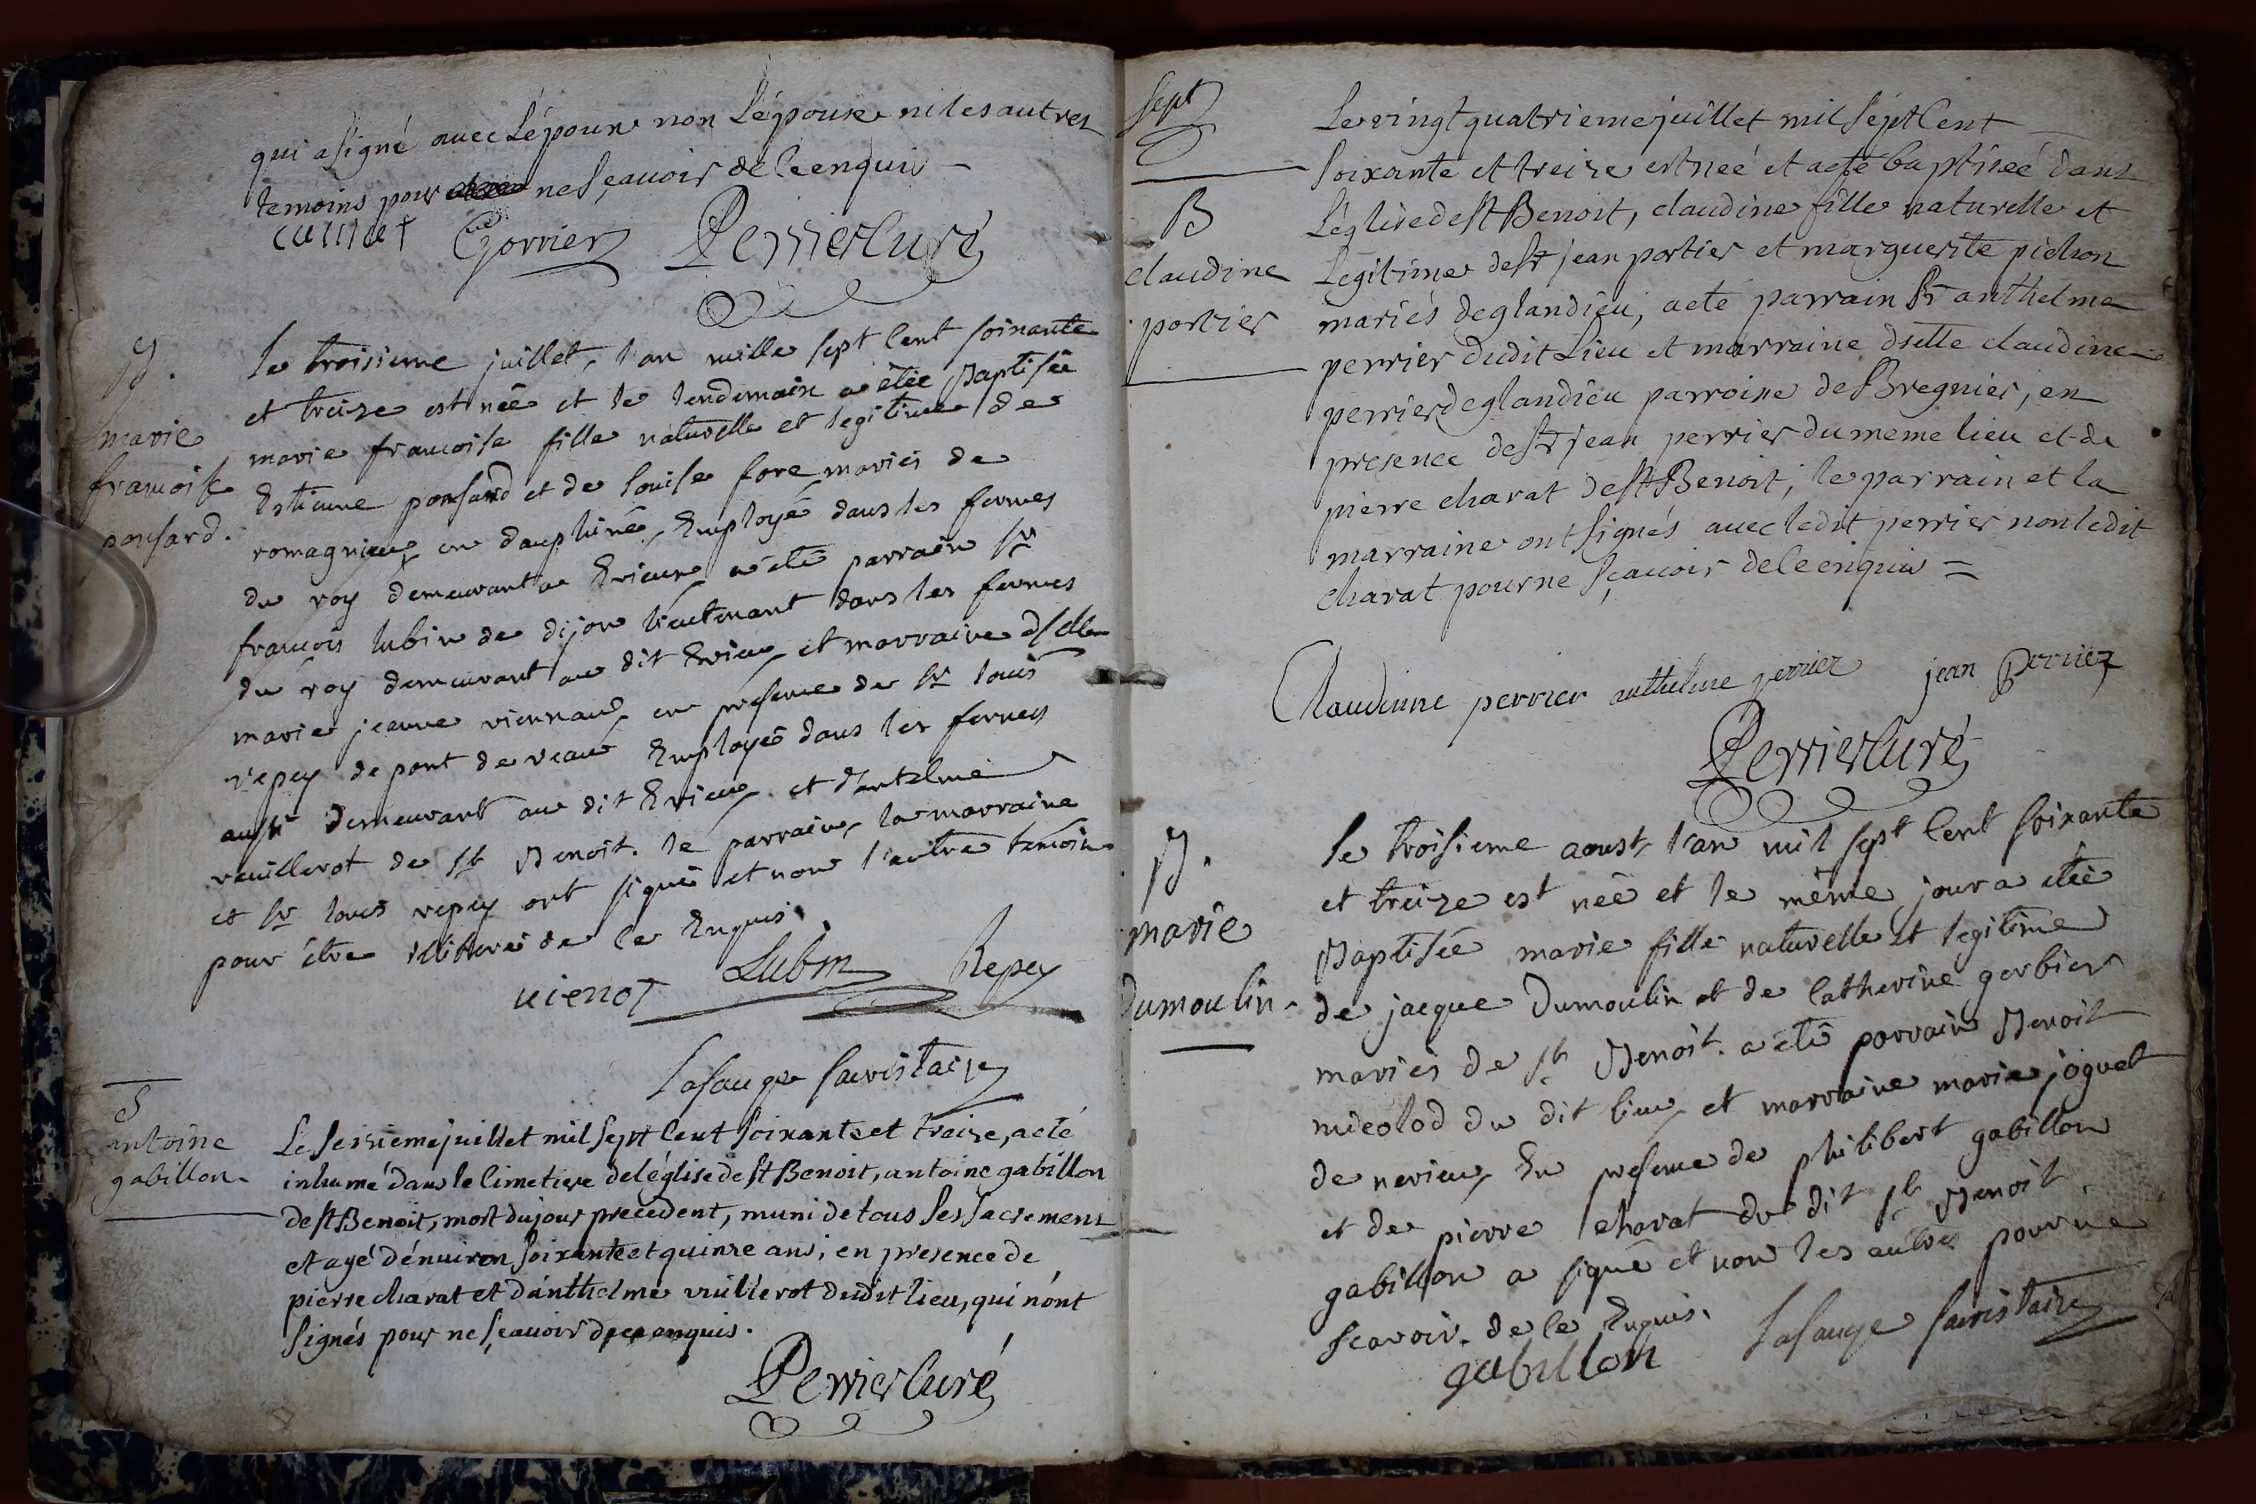 qui a signé avec Lépoux non Lépouse ni les autres
temoins pour ne sçavoir de ce enquis
cuinet Gorrier Perrier Curé
B.
marie
francoise
ponsard.
Le troisieme juillet, l'an mille sept Cent soixante
et treize est née et le lendemain a étée Baptisée
marie francoise fille naturelle et legitime de
Estienne ponsard et de louise fore mariés de
romagnieu en dauphiné, Employé dans les fermes
du roy demeurant a Evieux a été parrain Sr
francois lubin de dijon lieutenant dans les fermes
du roy demeurant au dit Evieu et marraine dslle
marie jeanne viennau en presence de Sr louis
repey de pont de veaux Employé dans les fermes
aussi demeurant au dit Evieu et d'antelme
veuillerot de St Benoit. le parrain, la marraine
et Sr louis repey ont signé et non l'autre temoin
pour étre illiteré de ce Enquis.
vienot Lubin Repey
Lasauge Sacristain
S
antoine
gabillon.
Le seizieme juillet mil sept Cent soixante et treize, a eté
inhumé dans le Cimetiere de l'église de St Benoit, antoine gabillon
de St Benoit, mort du jour precedent, muni de tous ses sacremens
et agé d'énviron soixante et quinze ans; en presence de
pierre charat et d'anthelme vuillerot dudit lieu, qui n'ont
signés pour ne sçavoir de ce enquis.
Perrier Curé
sept
B
claudine
portier
Le vingt quatrieme juillet mil sept Cent
soixante et treize est neé et a eté baptiseé dans
L'église de St Benoit, claudine fille naturelle et
Légitime de Sr jean portier et marguerite pichon
mariés de glandieu, a eté parrain Sr anthelme
perrier dudit Lieu et marraine dselle claudine
perrier de glandieu parroisse de St Bregnier, en
presence de Sr jean perrier du meme lieu et de
pierre charat de St Benoit; le parrain et la
marraine ont signés avec ledit perrier non ledit
charat pour ne sçavoir de ce enquis =
Claudinne perrier anthelme perrier jean Perrier
Perrier Curé
B.
marie
dumoulin
Le troisieme aoust, l'an mil sept Cent soixante
et treize est née et le même jour a étée
Baptisée marie fille naturelle et legitime
de jacque Dumoulin et de Catherine gerbier
mariés de St Benoit. a été parrain Benoit
micolod du dit lieu, et marraine marie joguet
de nerieu, En presence de philibert gabillon
et de pierre charat du dit St Benoit.
gabillon a signé et non les autres pour ne
scavoir. de ce Enquis.
gabillon Lasauge Sacristain